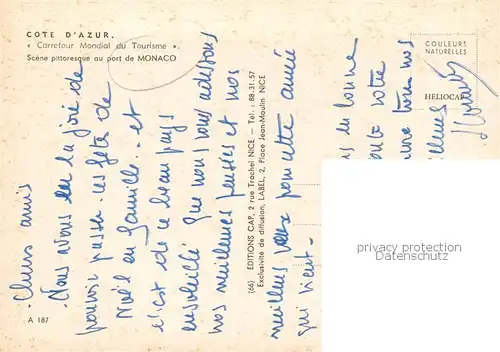 COTE D'AZUR.
« Carrefour Mondial du Tourisme ».
Scène pittoresque au port de MONACO
COULEURS
NATURELLES
HELIOCAP
Chers amis
Nous avons eu la joie de
pouvoir passer ces fêtes de
Noël en famille.. et
c'est de ce beau pays
ensoleillé que nous vous adressons
nos meilleures pensées et nos
meilleurs vœux pour cette année
qui vient-
(66) EDITIONS CAP, 2 rue Trachel NICE — Tél. : 88.31.57
Exclusivité de diffusion, LABEL, 2, Place Jean-Moulin NICE
en bonne
toute votre
nos
A 187
privacy protection
watermark